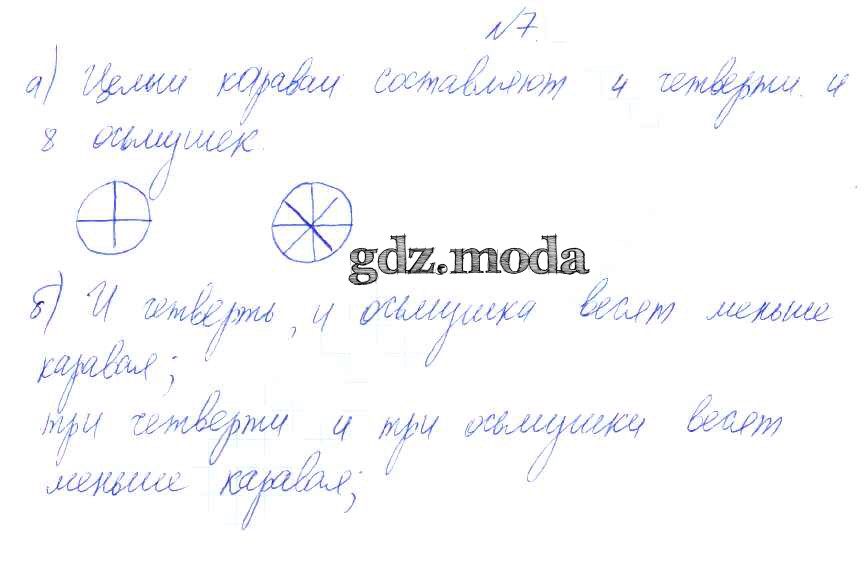 №7.
а) Целый каравай составляют 4 четверти и
8 осьмушек.
gdz.moda
б) И четверть, и осьмушка весят меньше
каравая;
три четверти и три осьмушки весят
меньше каравая;